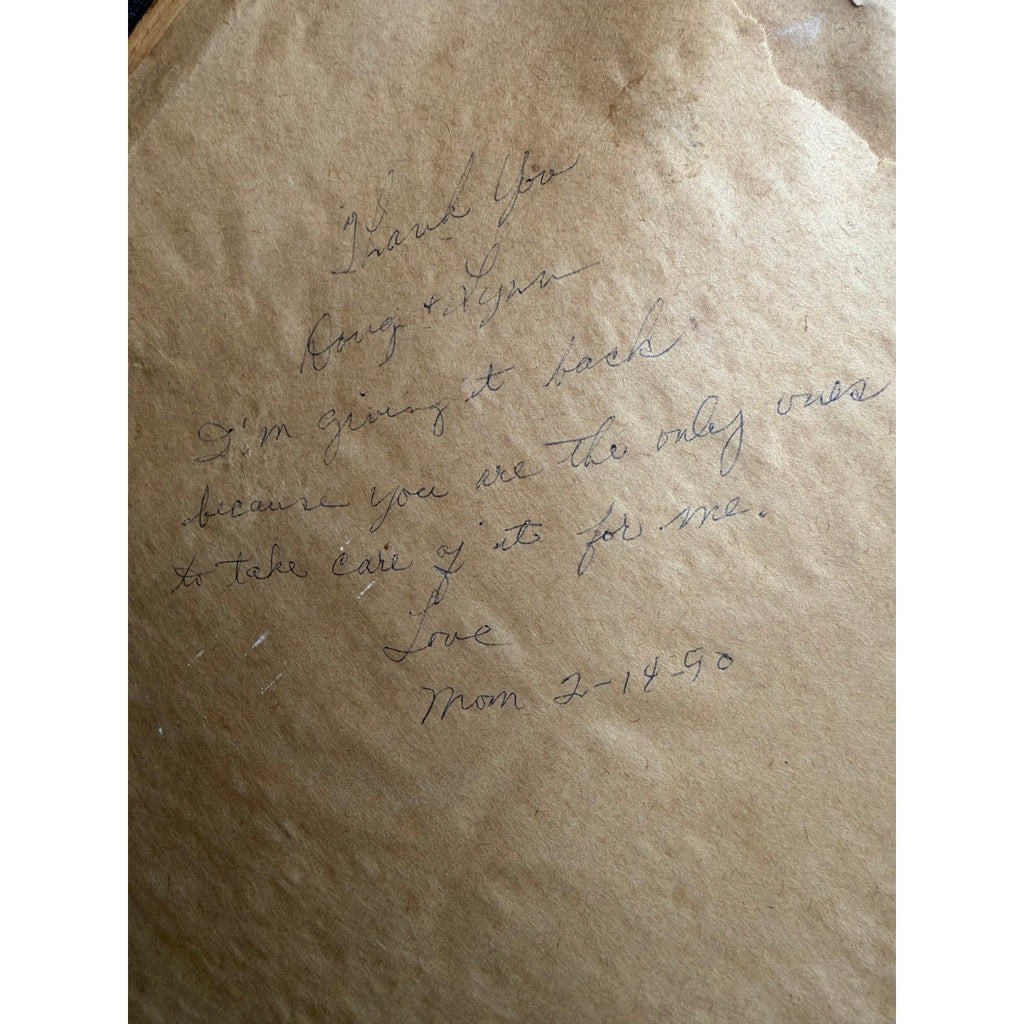 Thank You
Doug + Lynn
I'm giving it back
because you are the only ones
to take care of it for me.
Love
Mom 2-14-90